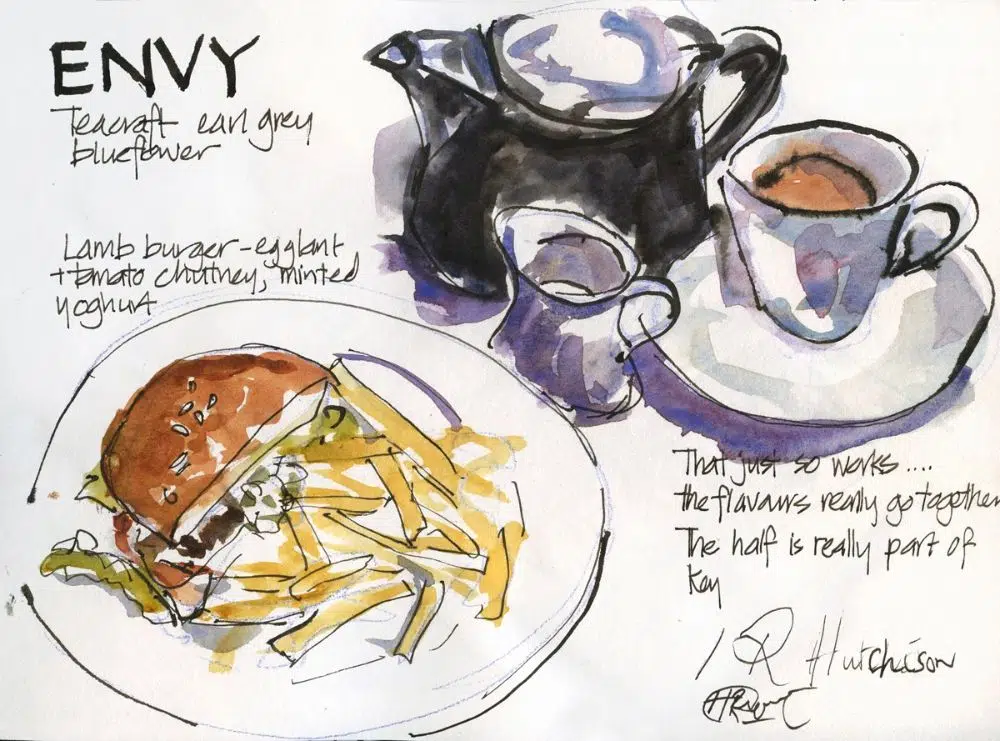 ENVY
Teacraft earl grey
blueflower
Lamb burger - egglant
+ tomato chutney, minted
yoghurt
That just so works ....
the flavours really go together
The half is really part of
key
R Hutchison